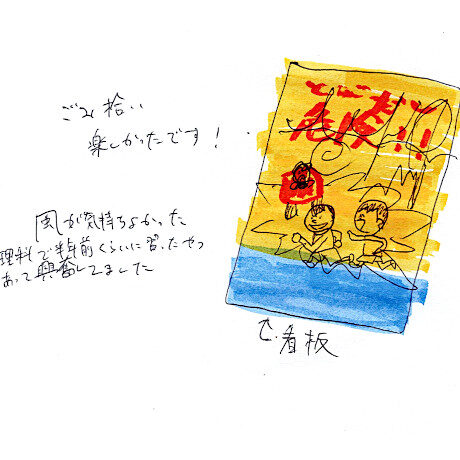 ごみ拾い
楽しかったです!
危険!!
風が気持ちよかった
理科で半年前くらいに習ったやつ
あって興奮してました
看板